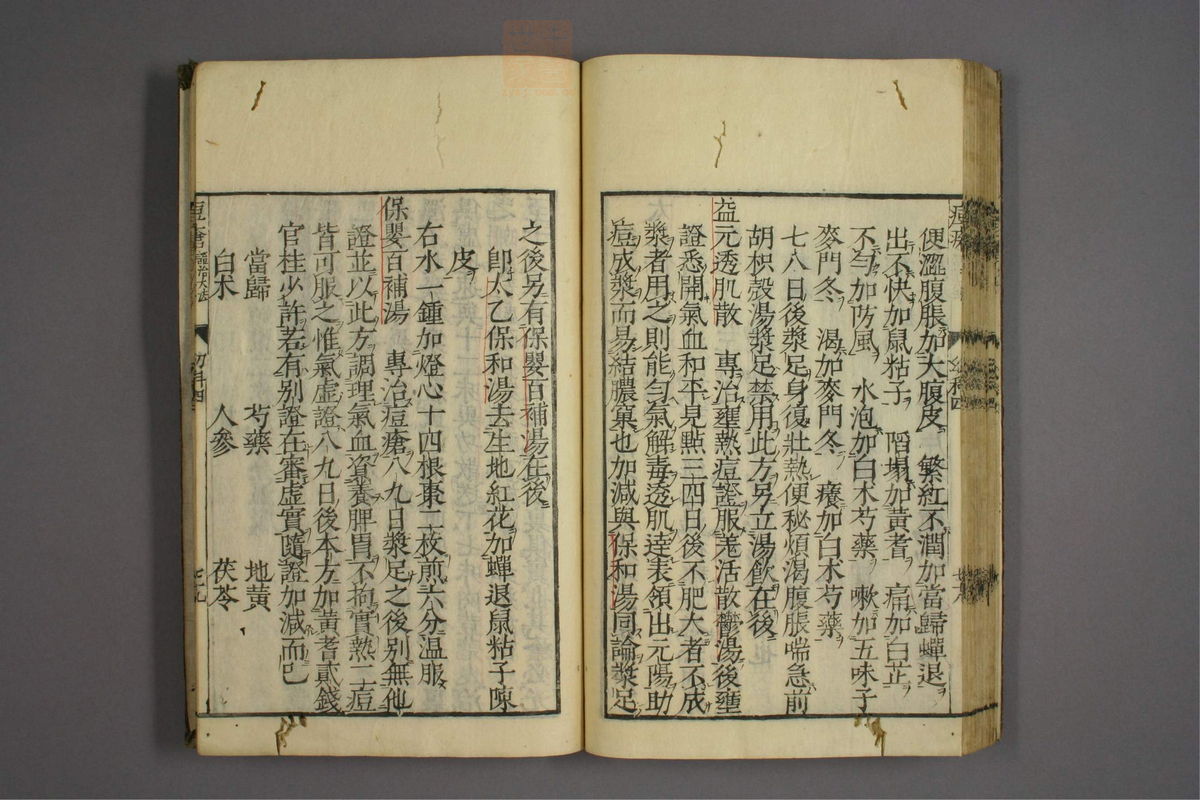 便澀腹脹加大腹皮　繁紅不潤加當歸蟬退
出不快加鼠粘子　陷塌加黃耆　痛加白芷
不勻加防風　水泡加白朮芍藥　嗽加五味子
麥門冬　渴加麥門冬　癢加白朮芍藥
七八日後漿足身復壯熱便秘煩渴腹脹喘急前
胡枳殼湯漿足禁用此方另立湯飲在後
益元透肌散　專治壅熱痘證服羗活散鬱湯後壅
證悉開氣血和平見點三四日後不肥大者不成
漿者用之則能勻氣解毒透肌達表領出元陽助
痘成漿而易結膿窠也加減與保和湯同論漿足
之後另有保嬰百補湯在後
卽太乙保和湯去生地紅花加蟬退鼠粘子陳
皮
右水一鍾加燈心十四根棗二枚煎六分溫服
保嬰百補湯　專治痘瘡八九日漿足之後別無他
證並以此方調理氣血資養脾胃不拘實熱二痘
皆可服之惟氣虛證八九日後本方加黃耆貳錢
官桂少許若有別證在審虛實隨證加減而已
當歸　芍藥　地黃
白朮　人參　茯苓
痘瘡證治大法　幼科四